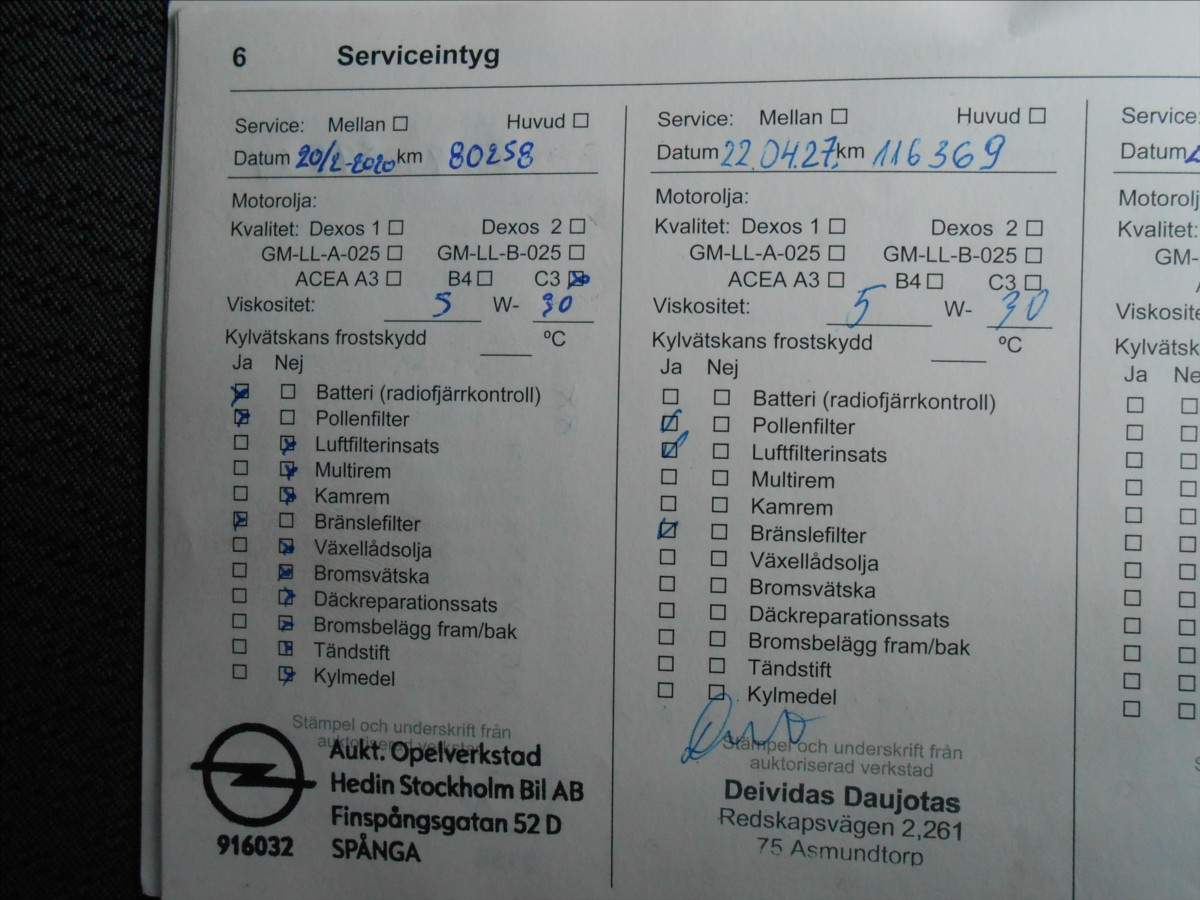 6 Serviceintyg
Service: Mellan ☐ Huvud ☐
Datum 20/2-2020 km 80258
Motorolja:
Kvalitet: Dexos 1 ☐ Dexos 2 ☐
GM-LL-A-025 ☐ GM-LL-B-025 ☐
ACEA A3 ☐ B4 ☐ C3 ☒
Viskositet: 5 W- 30
Kylvätskans frostskydd ____ ºC
Ja Nej
☒ ☐ Batteri (radiofjärrkontroll)
☒ ☐ Pollenfilter
☐ ☒ Luftfilterinsats
☐ ☒ Multirem
☐ ☒ Kamrem
☒ ☐ Bränslefilter
☐ ☒ Växellådsolja
☐ ☒ Bromsvätska
☐ ☒ Däckreparationssats
☐ ☒ Bromsbelägg fram/bak
☐ ☒ Tändstift
☐ ☒ Kylmedel
Stämpel och underskrift från
auktoriserad verkstad
Aukt. Opelverkstad
Hedin Stockholm Bil AB
Finspångsgatan 52 D
916032 SPÅNGA
Service: Mellan ☐ Huvud ☐
Datum 22.04.27. km 116369
Motorolja:
Kvalitet: Dexos 1 ☐ Dexos 2 ☐
GM-LL-A-025 ☐ GM-LL-B-025 ☐
ACEA A3 ☐ B4 ☐ C3 ☐
Viskositet: 5 W- 30
Kylvätskans frostskydd ____ ºC
Ja Nej
☐ ☐ Batteri (radiofjärrkontroll)
☑ ☐ Pollenfilter
☑ ☐ Luftfilterinsats
☐ ☐ Multirem
☐ ☐ Kamrem
☑ ☐ Bränslefilter
☐ ☐ Växellådsolja
☐ ☐ Bromsvätska
☐ ☐ Däckreparationssats
☐ ☐ Bromsbelägg fram/bak
☐ ☐ Tändstift
☐ ☐ Kylmedel
Stämpel och underskrift från
auktoriserad verkstad
Deividas Daujotas
Redskapsvägen 2,261
75 Asmundtorp
Service:
Datum
Motorolj
Kvalitet:
GM-
Viskosite
Kylvätsk
Ja Ne